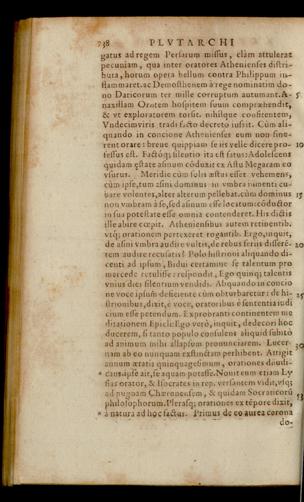 738 PLVTARCHI
gatus ad regem Persarum missus, clàm attulerat
pecuniam, qua inter oratores Athenienses distri-
buta, horum opera bellum contra Philippum in-
flammaret: ac Demosthenem à rege nominatim do-
no Daricorum ter mille corruptum autumant. A- 5
naxillam Oratem hospitem suum comprehendit,
& vt exploratorem torsit. nihilque confitentem,
Vndecimviris tradi facto decreto iussit. Cùm ali-
quando in concione Athenienses eum non sine-
rent orare: breue quippiam se iis velle dicere pro- 10
fessus est. Factóq; silentio ita est fatus: Adolescens
quidam æstate asinum cōduxit ex Astu Megaram eo
vsurus. Meridie cùm solis æstus esset vehemens,
cùm ipse, tum asini dominus in vmbra iumenti cu-
bare volentes, alter alterum pellebat. cùm dominus 15
non vmbram à se, sed asinum esse locatum: cōductor
in sua potestate esse omnia contenderet. His dictis
ille abire cœpit. Atheniensibus autem retinentib.
vtq; orationem pertexeret rogantib. Ergo, inquit,
de asini vmbra audire vultis, de rebus seriis disserē- 20
tem audire recusatis? Polo histrioni aliquando di-
centi ad ipsum, biduí certamine se talentum pro
mercede retulisse: respondit, Ego quinq; talentis
vnius diei silentium vendidi. Abquando in concio
ne voce ipsum deficiente cùm obturbaretur: de hi- 25
strionibus, dixit, è voce, oratoribus è sententia iudi
cium esse petendum. Exprobranti continentem me
ditationem Epicli: Ego verò, inquit, dedecori hoc
ducerem, si tanto populo consulens aliquid subitò
ad animum mihi allapsum pronunciarem. Lucer- 30
nam ab eo nunquam exstinctam perhibent. Attigit
annum ætatis quinquagesimum, orationes diiudi-
cans. ipse ait, se aquam potasse. Nouit eum etiam Ly
sias orator, & Isocrates in rep. versantem vidit, vsq;
ad pugnam Chæronensem, & quidam Socraticorū
philosophorum. Plerasq; orationes ex tēpore dixit,
à natura ad hoc factus. Primus de eo aurea corona
do-